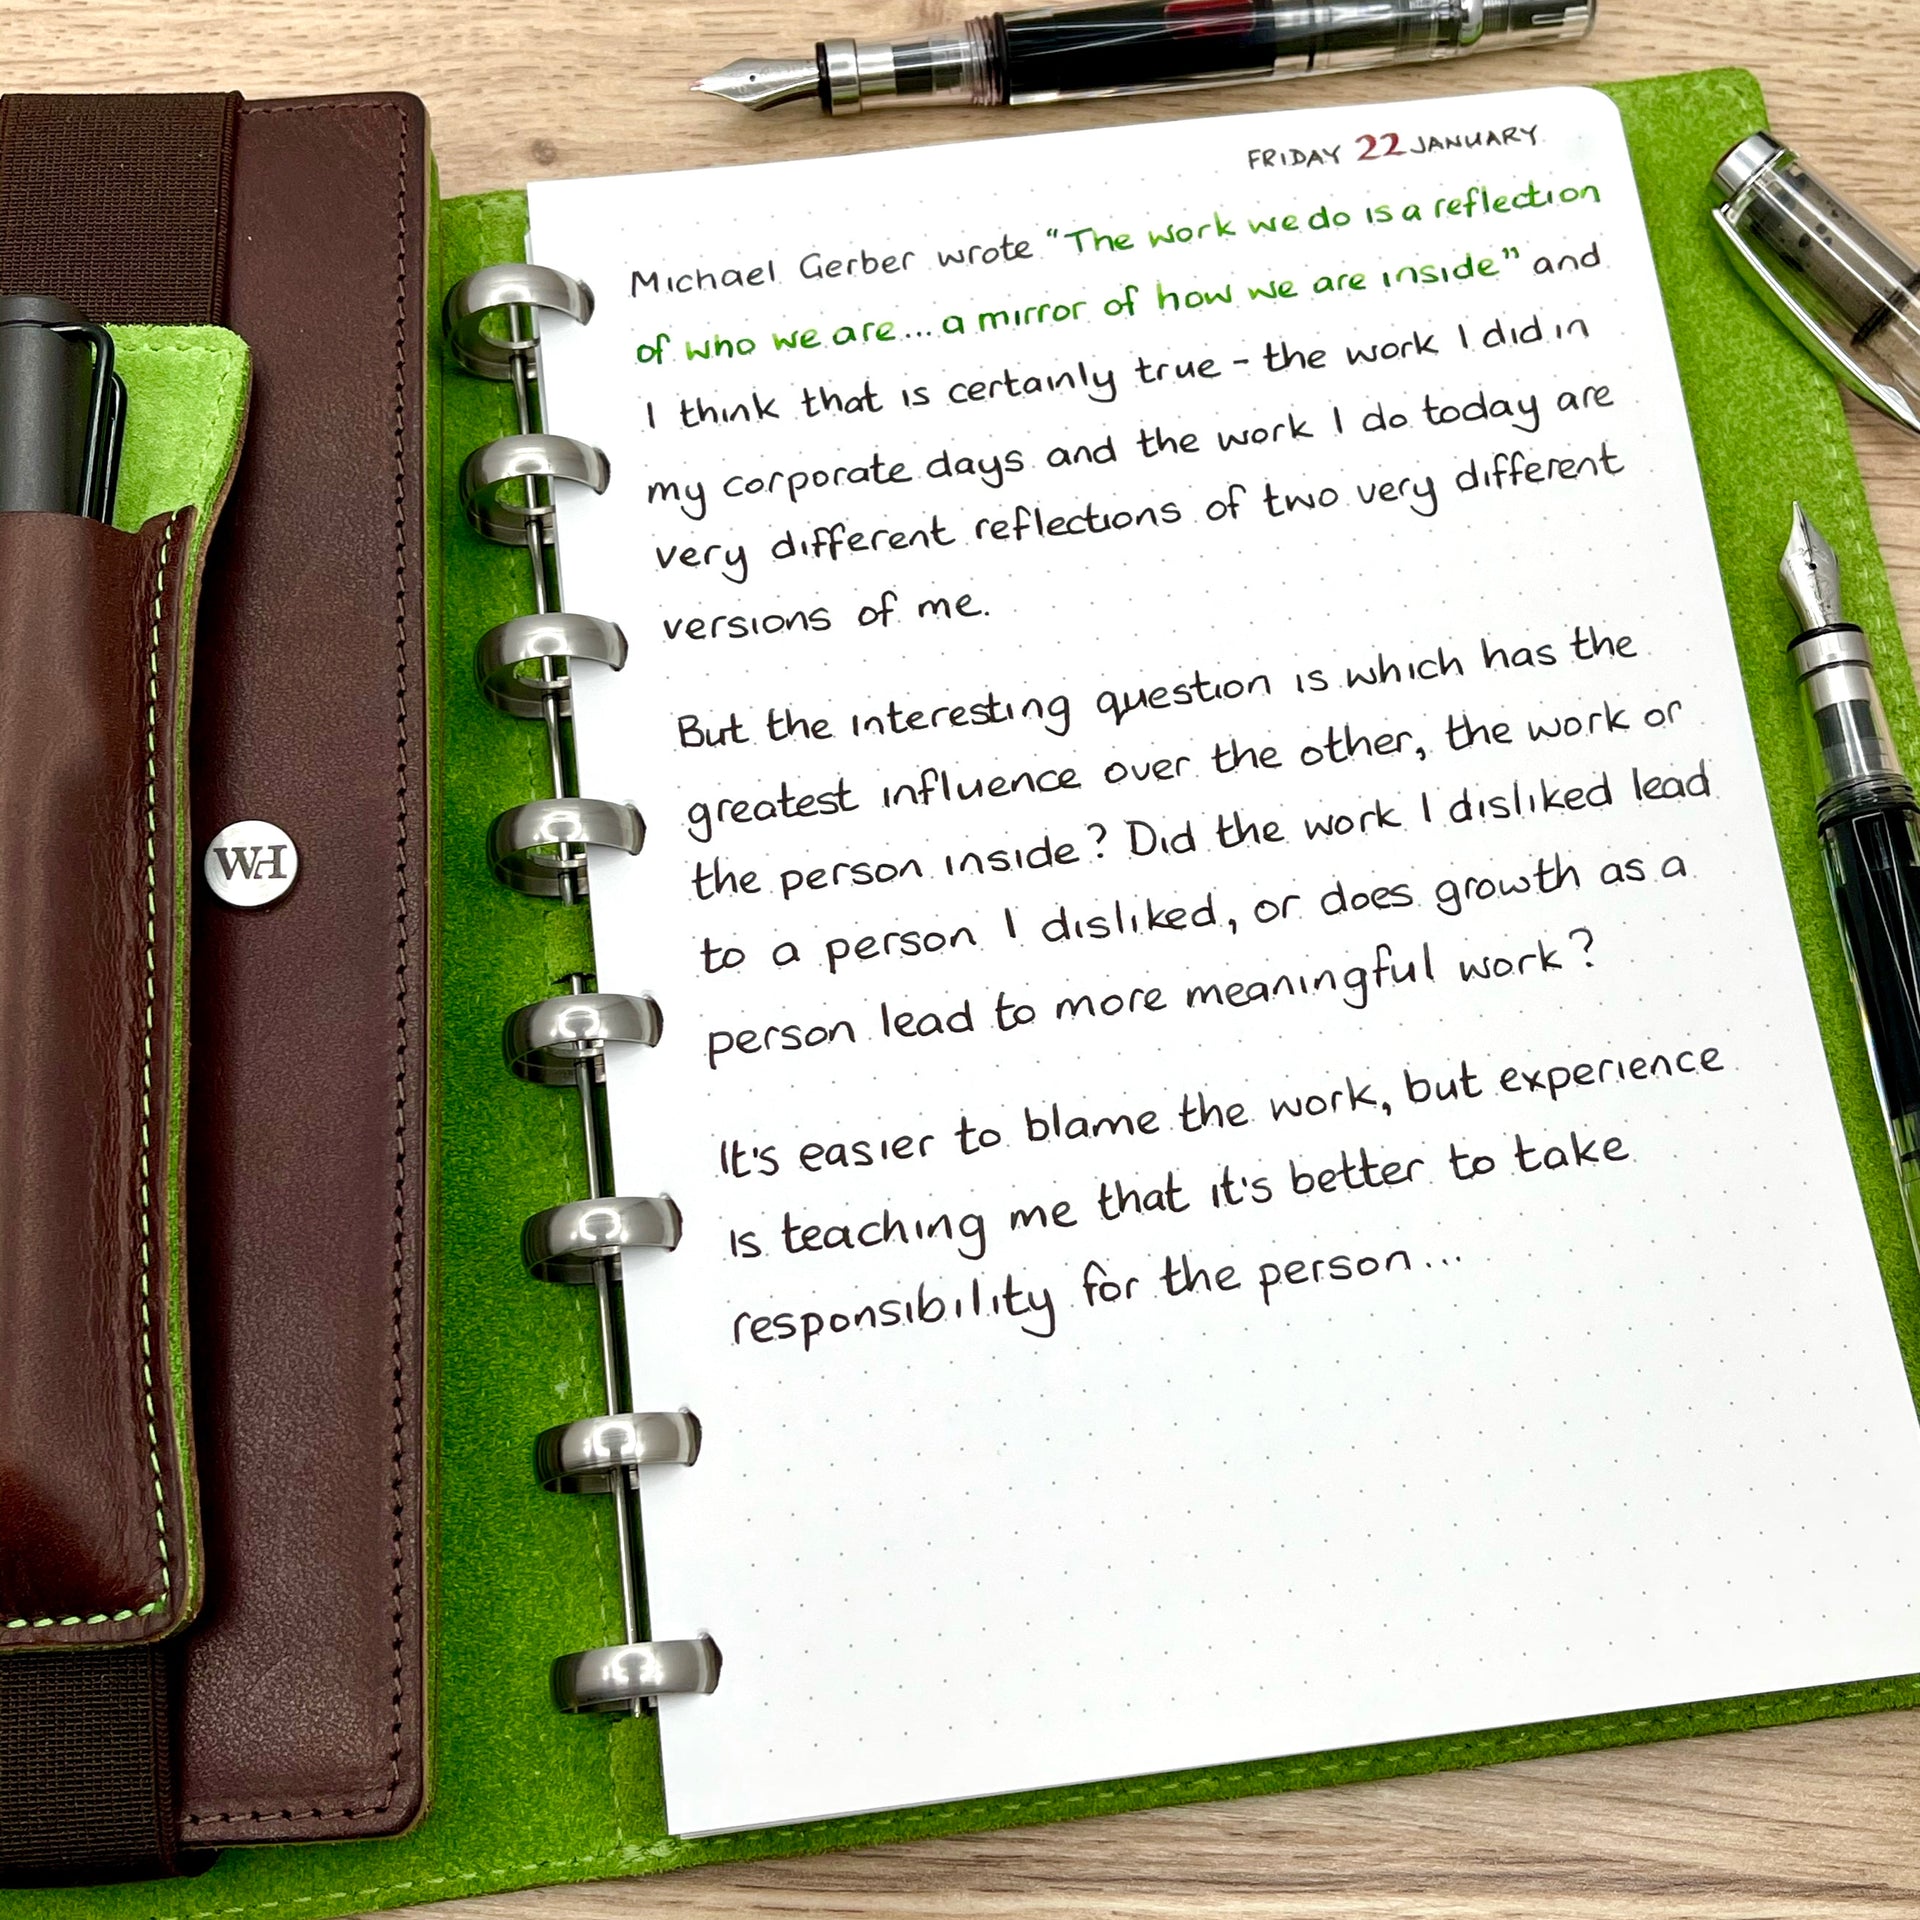 FRIDAY 22 JANUARY
Michael Gerber wrote “The work we do is a reflection
of who we are... a mirror of how we are inside” and
I think that is certainly true - the work I did in
my corporate days and the work I do today are
very different reflections of two very different
versions of me.
But the interesting question is which has the
greatest influence over the other, the work or
the person inside? Did the work I disliked lead
to a person I disliked, or does growth as a
person lead to more meaningful work?
It's easier to blame the work, but experience
is teaching me that it's better to take
responsibility for the person...
WH